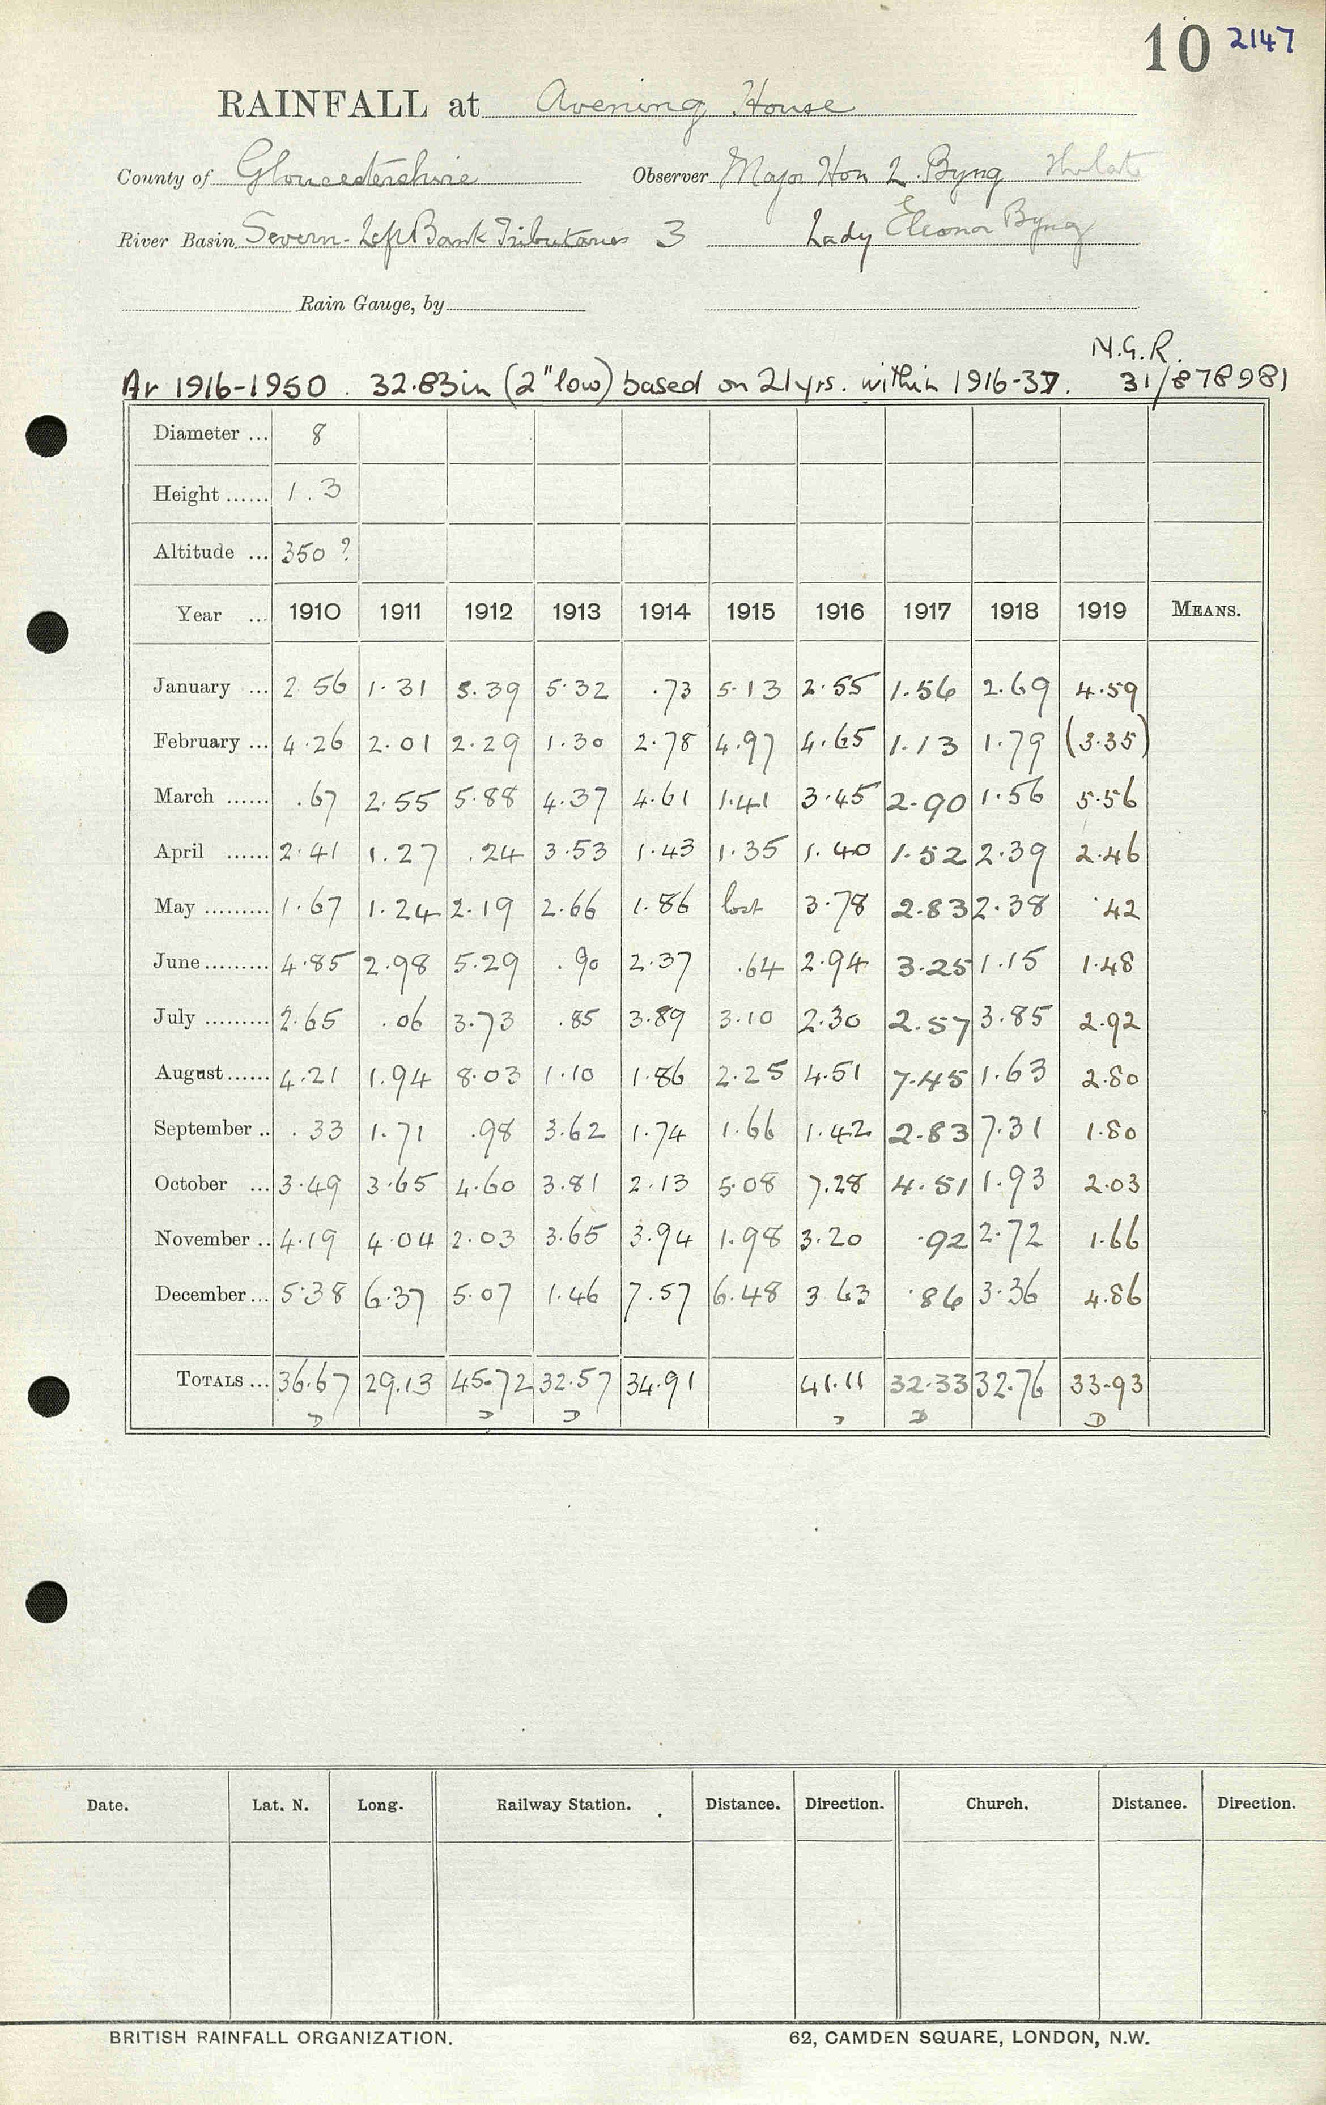 10 2147
RAINFALL at Avening House
County of Gloucestershire Observer Major Hon L. Byng
River Basin Severn - Left Bank Tributaries 3 Lady Eleonor Byng
Rain Gauge, by
N.G.R.
Av 1916-1950. 32.83in (2" low) based on 21 yrs. within 1916-37. 31/878981
Diameter ... 8
Height ...... 1.3
Altitude ... 350 ?
Year ... 1910 1911 1912 1913 1914 1915 1916 1917 1918 1919 MEANS.
January ... 2.56 1.31 5.39 5.32 .73 5.13 2.55 1.56 2.69 4.59
February ... 4.26 2.01 2.29 1.30 2.78 4.97 4.65 1.13 1.79 (3.35)
March ...... .67 2.55 5.88 4.37 4.61 1.41 3.45 2.90 1.56 5.56
April ...... 2.41 1.27 .24 3.53 1.43 1.35 1.40 1.52 2.39 2.46
May ......... 1.67 1.24 2.19 2.66 1.86 lost 3.78 2.83 2.38 .42
June ......... 4.85 2.98 5.29 .90 2.37 .64 2.94 3.25 1.15 1.48
July ......... 2.65 .06 3.73 .85 3.89 3.10 2.30 2.57 3.85 2.92
August ...... 4.21 1.94 8.03 1.10 1.86 2.25 4.51 7.45 1.63 2.80
September .. .33 1.71 .98 3.62 1.74 1.66 1.42 2.83 7.31 1.80
October ... 3.49 3.65 4.60 3.81 2.13 5.08 7.28 4.51 1.93 2.03
November .. 4.19 4.04 2.03 3.65 3.94 1.98 3.20 .92 2.72 1.66
December ... 5.38 6.37 5.07 1.46 7.57 6.48 3.63 .86 3.36 4.86
TOTALS ... 36.67 29.13 45.72 32.57 34.91 41.11 32.33 32.76 33.93
D D D D D D
Date. Lat. N. Long. Railway Station. Distance. Direction. Church. Distance. Direction.
BRITISH RAINFALL ORGANIZATION. 62, CAMDEN SQUARE, LONDON, N.W.